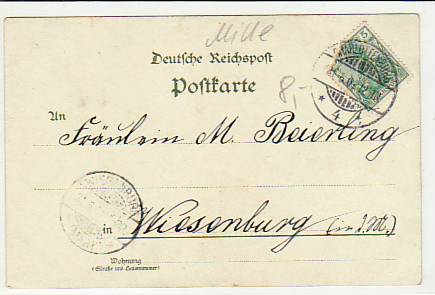 Mille
Deutsche Reichspost
Postkarte
8,-
An
Fräulein M. Beierling
in Wiesenburg (i. M.)
Wohnung
(Straße und Hausnummer)
5
* 4 f